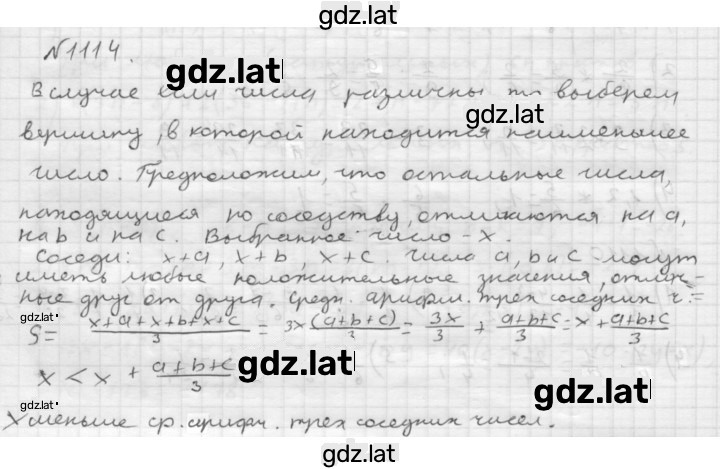 gdz.lat
№1114.
gdz.lat
В случае если числа различны то выберем
gdz.lat
вершину, в которой находится наименьшее
число. Предположим, что остальные числа,
находящиеся по соседству, отличаются на a,
на b и на c. Выбранное число - x.
Соседи: x+a, x+b, x+c. Числа a, b и c могут
иметь любые положительные значения, отлич-
ные друг от друга. Средн. арифм. трех соседних ч.=
gdz.lat
S= (x+a+x+b+x+c)/3 = 3x(a+b+c)/3 = 3x/3 + (a+b+c)/3 = x + (a+b+c)/3
x < x + (a+b+c)/3
gdz.lat
gdz.lat
gdz.lat
x меньше ср. арифм. трех соседних чисел.
gdz.lat